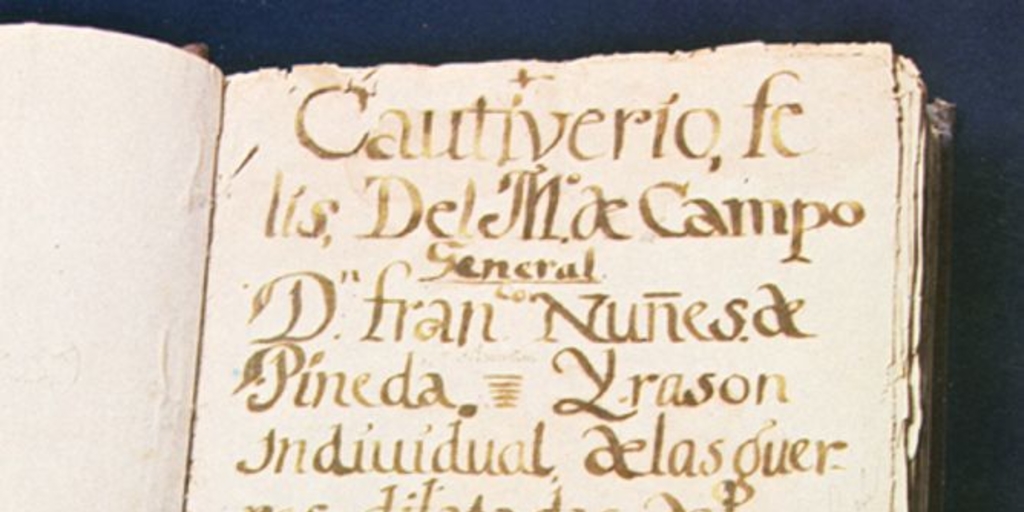 Cautiverio, fe
lis, Del M.º de Campo
General
D.ⁿ fran.ᶜᵒ Nuñes de
Pineda. Y rason
Indiuidual, de las guer-
ras dilatadas del